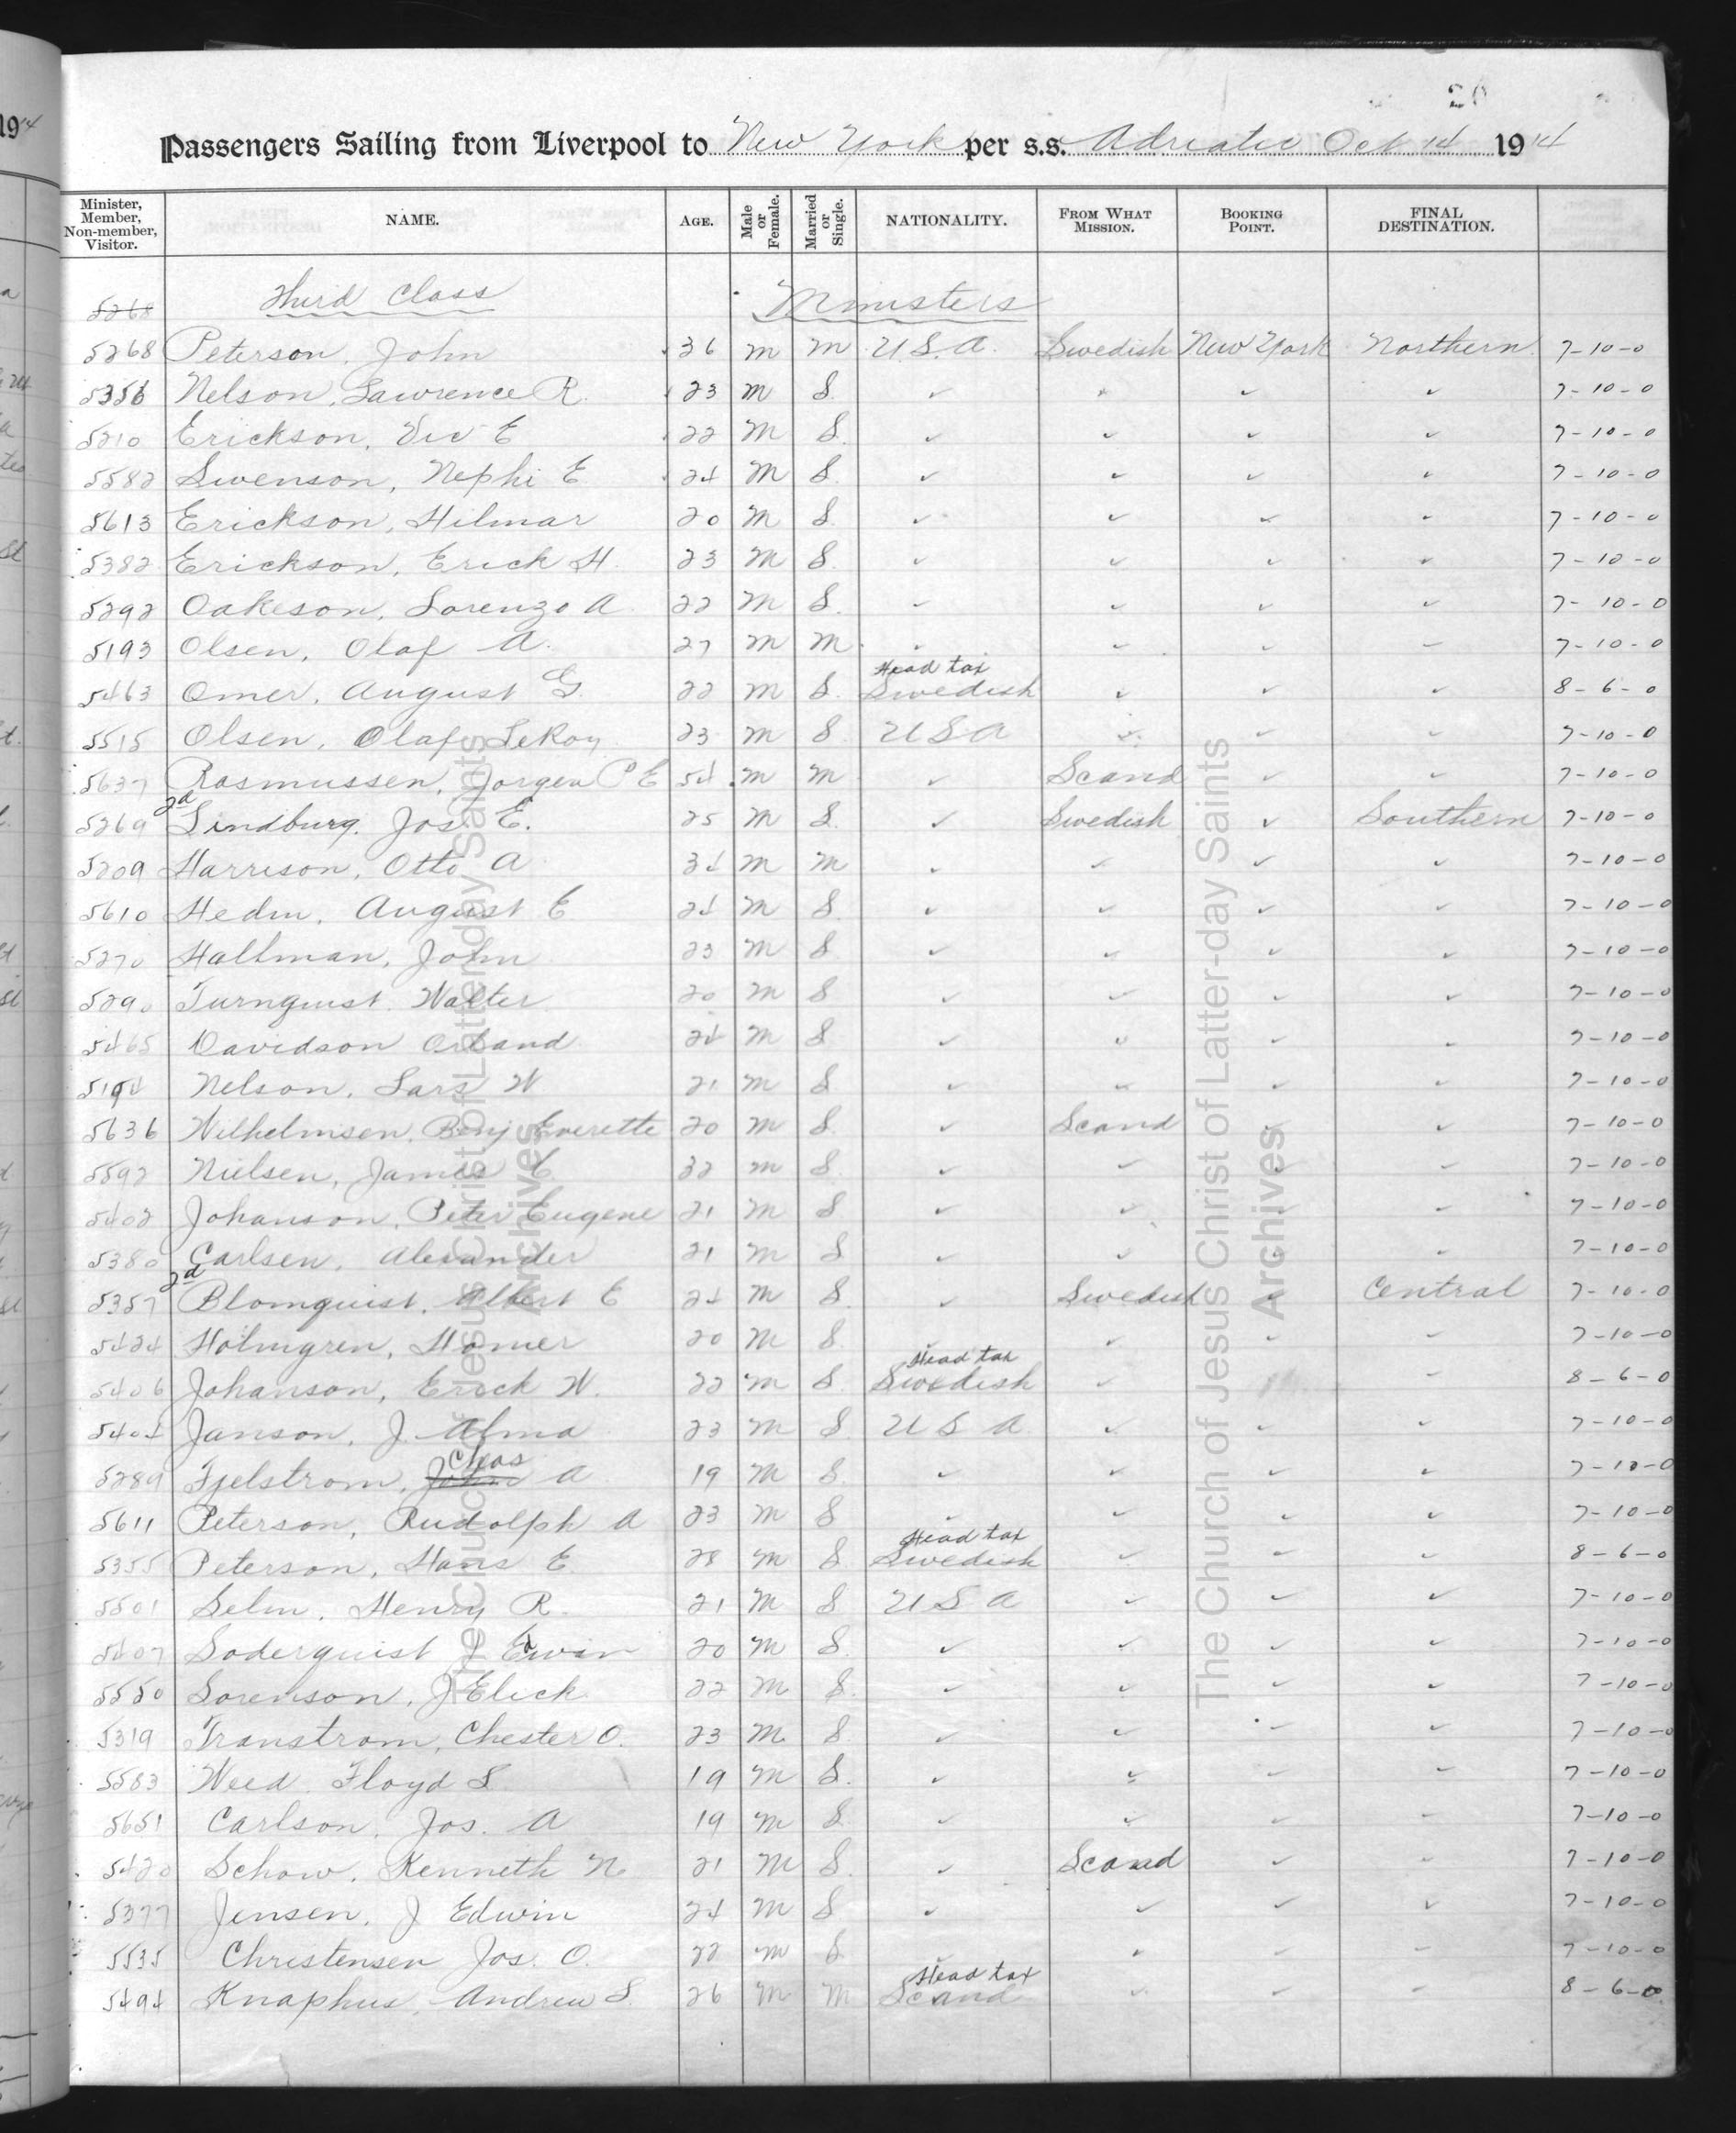 20
Passengers Sailing from Liverpool to New York per s.s. Adriatic Oct 14 1914
Minister, Member, Non-member, Visitor. NAME. AGE. Male or Female. Married or Single. NATIONALITY. FROM WHAT MISSION. BOOKING POINT. FINAL DESTINATION.
5268 Third Class Ministers
5268 Peterson, John 36 M M U.S.A. Swedish New York Northern 7-10-0
5356 Nelson, Lawrence R. 23 M S. ✓ ✓ ✓ ✓ 7-10-0
5210 Erickson, Vic E 22 M S. ✓ ✓ ✓ ✓ 7-10-0
5582 Swenson, Nephi E 24 M S. ✓ ✓ ✓ ✓ 7-10-0
5613 Erickson, Hilmar 20 M S. ✓ ✓ ✓ ✓ 7-10-0
5382 Erickson, Erick H. 23 M S. ✓ ✓ ✓ ✓ 7-10-0
5292 Oakeson, Lorenzo A 22 M S. ✓ ✓ ✓ ✓ 7-10-0
5193 Olsen, Olaf A. 27 M M ✓ ✓ ✓ ✓ 7-10-0
Head tax
5463 Omer, August G. 22 M S. Swedish ✓ ✓ ✓ 8-6-0
5515 Olsen, Olaf LeRoy 23 M S U S A ✓ ✓ ✓ 7-10-0
5637 Rasmussen, Jorgen P E 54 M M ✓ Scand ✓ ✓ 7-10-0
2d
5269 Lindburg, Jos. E. 25 M S. ✓ Swedish ✓ Southern 7-10-0
5209 Harrison, Otto A 34 M M ✓ ✓ ✓ ✓ 7-10-0
5610 Hedin, August E 24 M S ✓ ✓ ✓ ✓ 7-10-0
5270 Hallman, John 23 M S ✓ ✓ ✓ ✓ 7-10-0
5290 Turnquist Walter 20 M S ✓ ✓ ✓ ✓ 7-10-0
5465 Davidson Orland 24 M S ✓ ✓ ✓ ✓ 7-10-0
5194 Nelson, Lars W 21 M S ✓ ✓ ✓ ✓ 7-10-0
5636 Wilhelmsen, Benj Everette 20 M S. ✓ Scand ✓ ✓ 7-10-0
5592 Nielsen, James E 32 M S ✓ ✓ ✓ ✓ 7-10-0
5402 Johanson, Peter Eugene 21 M S ✓ ✓ ✓ ✓ 7-10-0
5380 Carlsen, Alexander 21 M S ✓ ✓ ✓ ✓ 7-10-0
2d
5357 Blomquist, Albert E 24 M S. ✓ Swedish ✓ Central 7-10-0
5424 Holmgren, Homer 20 M S. ✓ ✓ ✓ ✓ 7-10-0
Head tax
5406 Johanson, Erick W. 22 M S. Swedish ✓ ✓ 8-6-0
5404 Janson, J. Alma 23 M S. U S A ✓ ✓ ✓ 7-10-0
Chas
5289 Fjelstrom, John A 19 M S. ✓ ✓ ✓ ✓ 7-10-0
5611 Peterson, Rudolph A 23 M S ✓ ✓ ✓ ✓ 7-10-0
Head tax
5355 Peterson, Hans E 28 M S. Swedish ✓ ✓ ✓ 8-6-0
5501 Selin, Henry R. 21 M S U S A ✓ ✓ ✓ 7-10-0
5407 Soderquist J Edwin 20 M S. ✓ ✓ ✓ ✓ 7-10-0
5550 Sorenson, J Elick 22 M S. ✓ ✓ ✓ ✓ 7-10-0
5319 Transtrom, Chester O. 23 M S. ✓ ✓ ✓ ✓ 7-10-0
5583 Weed, Floyd S 19 M S. ✓ ✓ ✓ ✓ 7-10-0
5651 Carlson, Jos. A 19 M S. ✓ ✓ ✓ ✓ 7-10-0
5420 Schow, Kenneth N. 21 M S. ✓ Scand ✓ ✓ 7-10-0
5377 Jensen, J Edwin 24 M S ✓ ✓ ✓ ✓ 7-10-0
5535 Christensen Jos. O. 22 M S ✓ ✓ ✓ ✓ 7-10-0
Head tax
5494 Knaphus, Andrew S 26 M M Scand ✓ ✓ ✓ 8-6-0
The Church of Jesus Christ of Latter-day Saints
Archives
The Church of Jesus Christ of Latter-day Saints
Archives